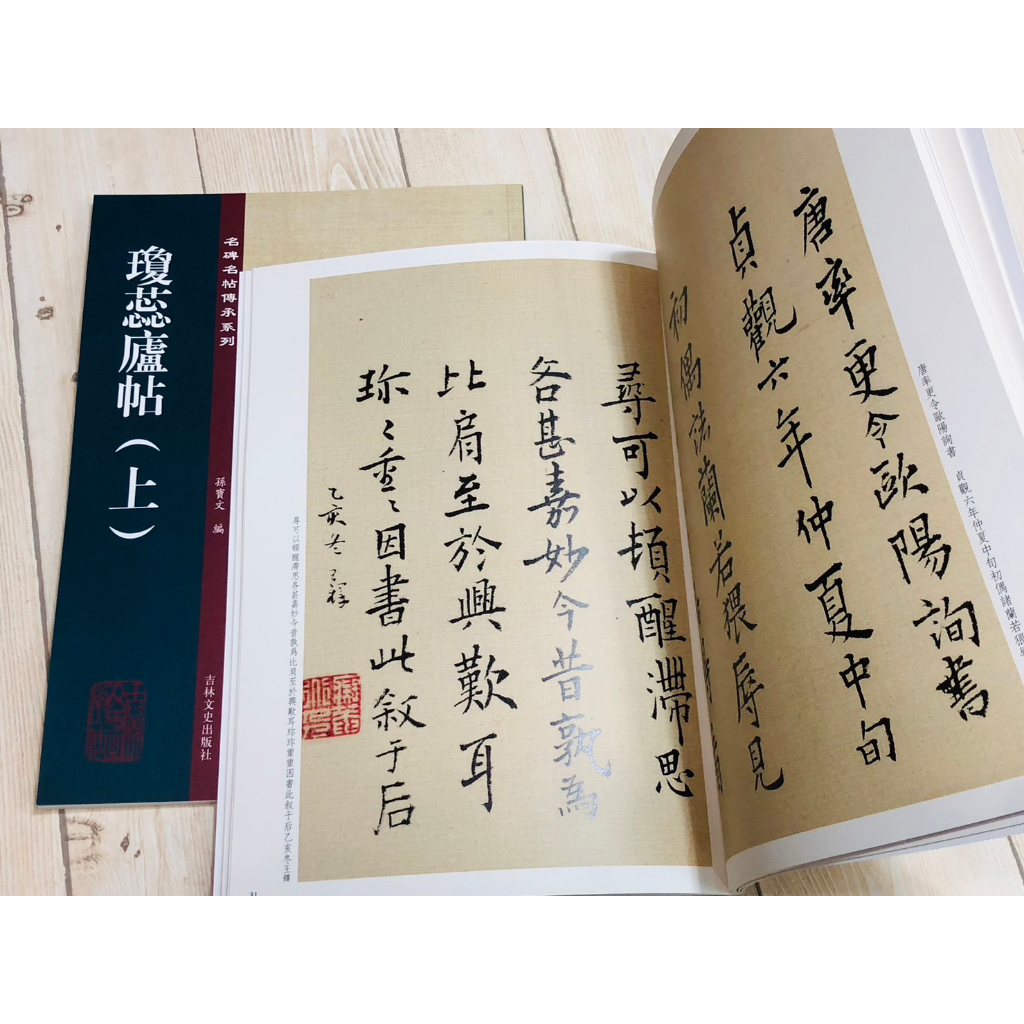 瓊蕊廬帖(上)
名碑名帖傳承系列
孫寶文 編
吉林文史出版社
唐率更令歐陽詢書
貞觀六年仲夏中旬
初偶詣蘭若猥辱見
唐率更令歐陽詢書 貞觀六年仲夏中旬初偶諸蘭若猥
尋可以頓醒滯思
各甚嘉妙今昔孰為
比肩至於興歎耳
珎〻重〻因書此敘于后
乙亥冬王鐸
尋可以頓醒滯思各甚嘉妙今昔孰爲比肩至於興歎耳珎珎重重因書此敘于后乙亥冬王鐸